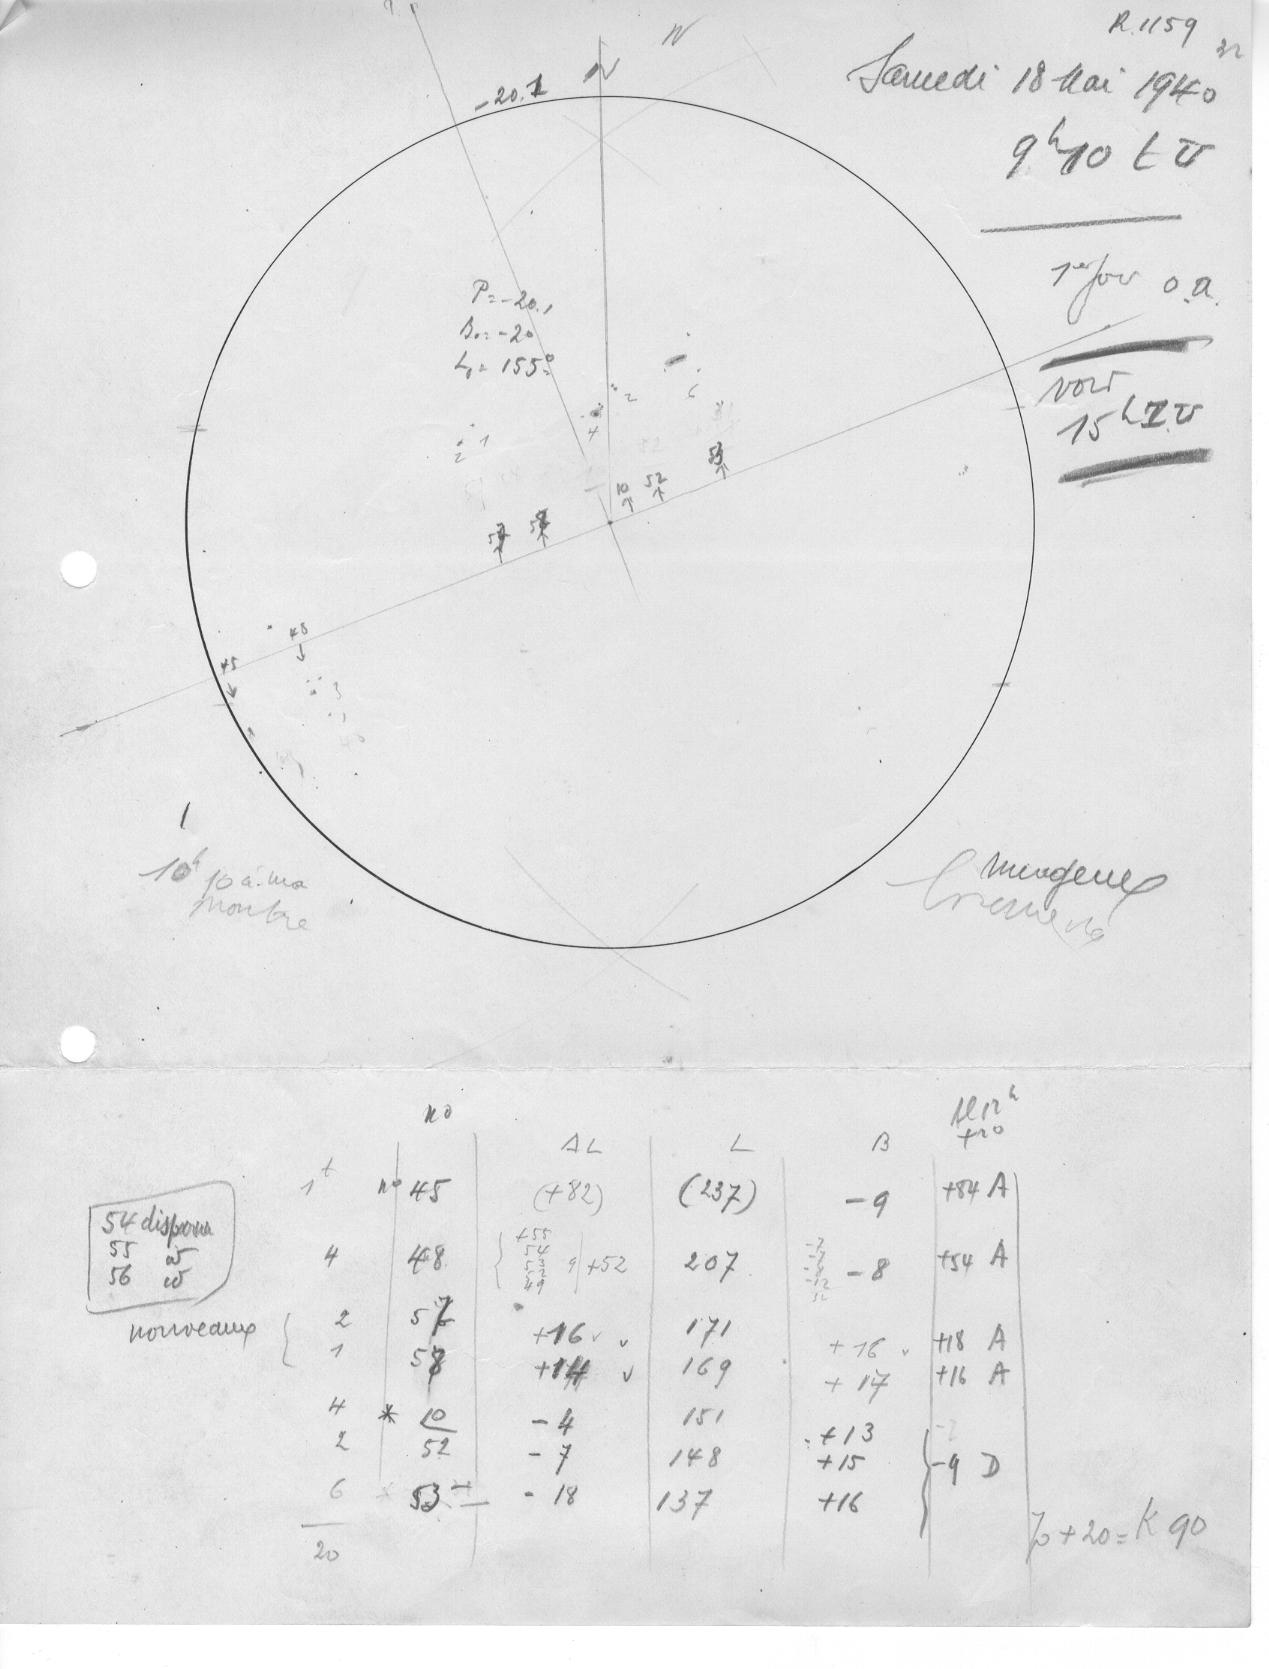 R.1159
32
Samedi 18 Mai 1940
9h10 t U
N
N
-20.1
P=-20.1
B0=-20
L0=155°
1er jour o.a.
voir
15h T.U
2
6
4
1
2
53
52
10
57
58
48
45
3
1
10h 10 à ma
montre
nuageux
no
AL
L
B
1t no 45 (+82) (237) -9 +84 A
4 48 +55 54 53 52 49 +52 207 -8 +54 A
2 57 +16 171 +16 +18 A
1 58 +14 169 +17 +16 A
4 * 10 -4 151 +13
2 52 -7 148 +15 -9 D
6 53 -18 137 +16
20
54 disparu
55 id
56 id
nouveaux
70+20=K 90